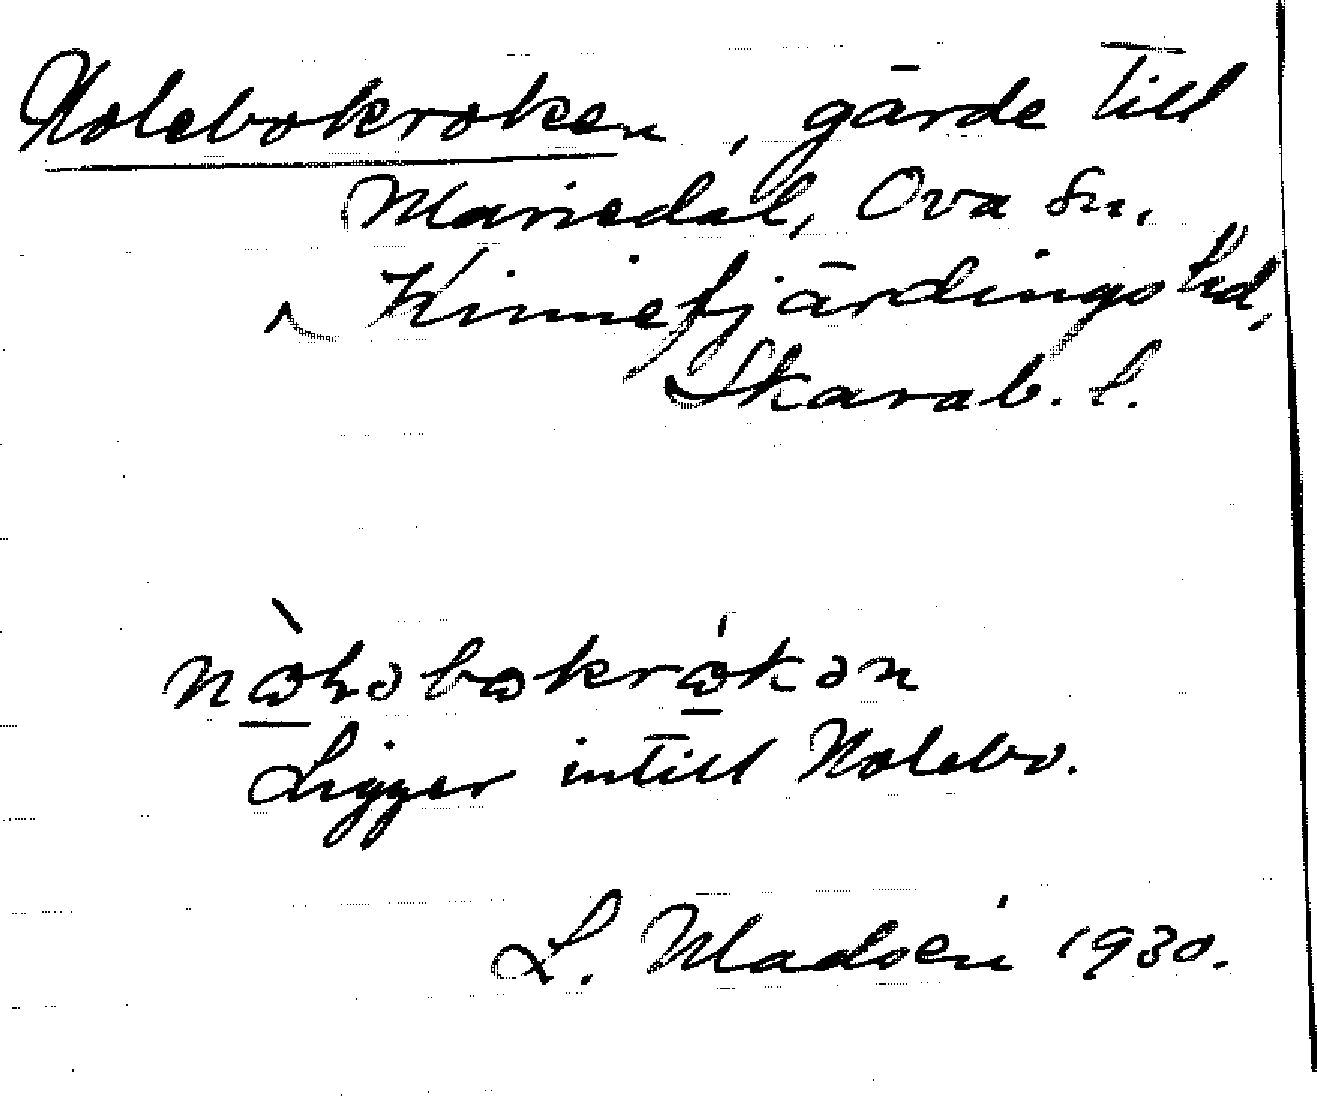 Nolebokroken, gärde till
Mariedal, Ova Sn,
Kinnefjärdings hd,
Skarab. l.
Ligger intill Nolebo.
L. Madsén 1930.